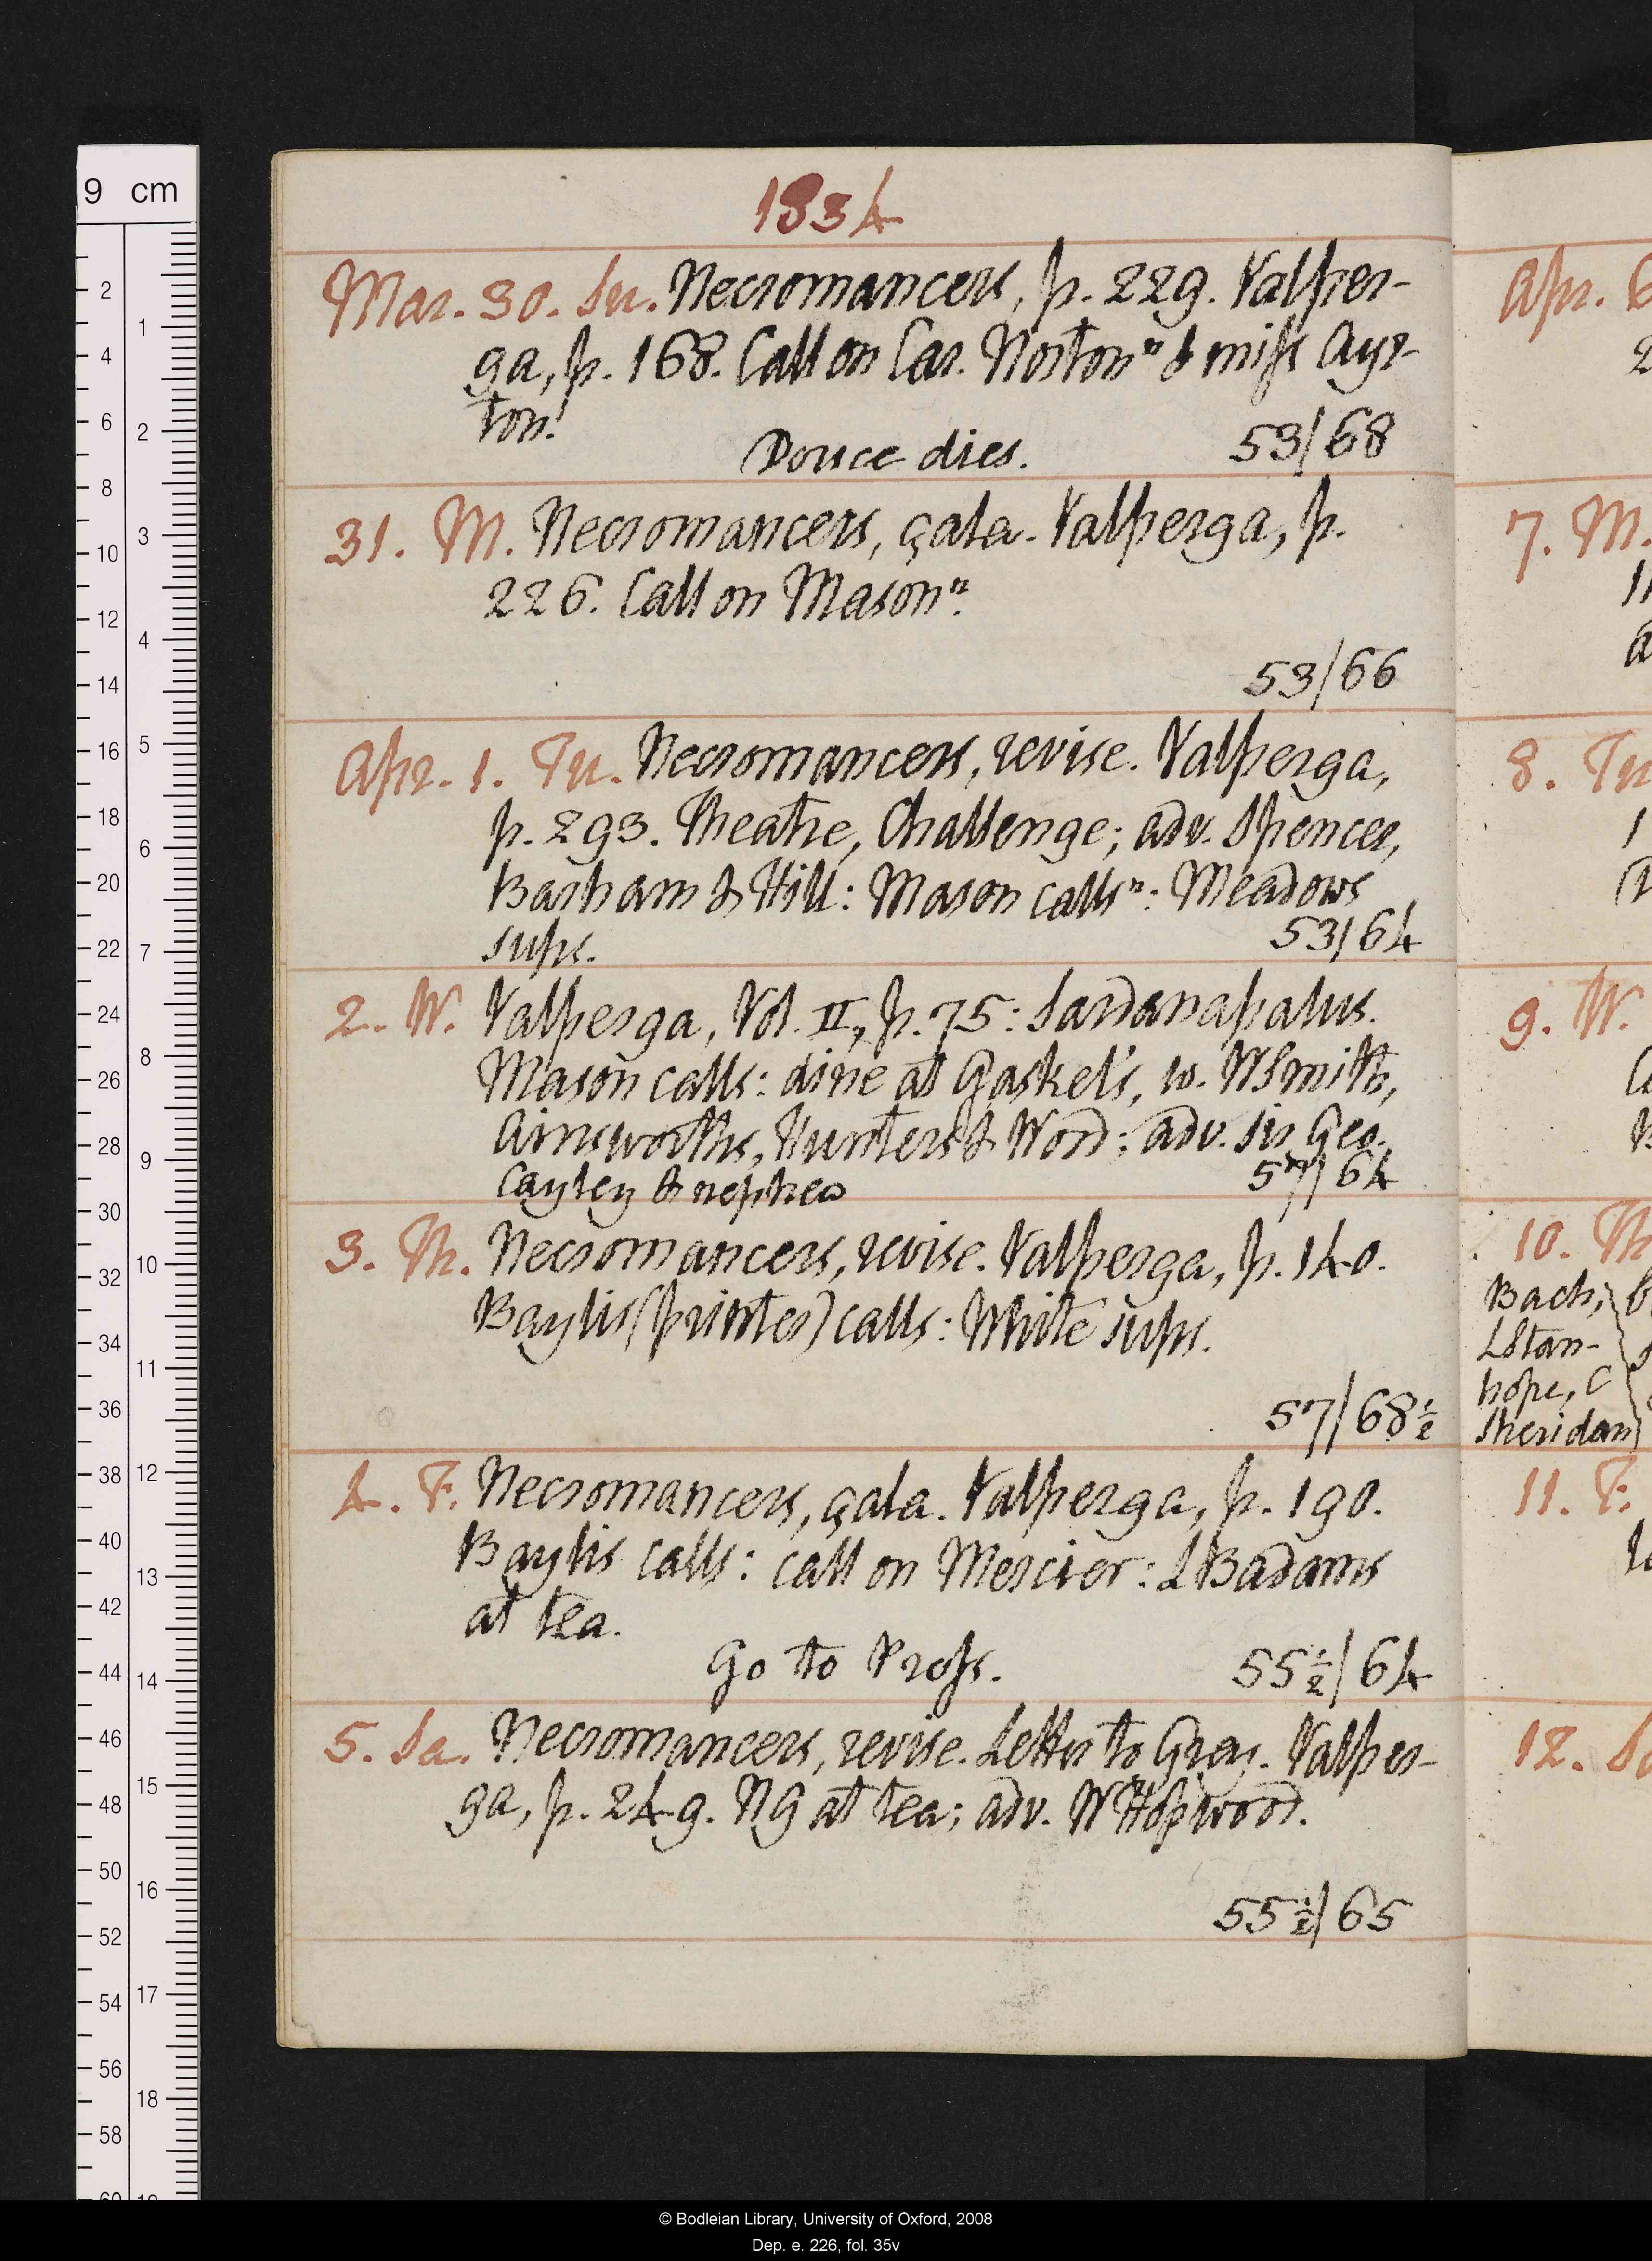 1834
Mar. 30. Su. Necromancers, p. 229. Valper-
ga, p. 168. Call on Car. Norton n & miss Ayr-
ton.
Douce dies. 53/68
31. M. Necromancers, çala. Valperga, p.
226. Call on Mason n.
53/66
Apr. 1. Tu. Necromancers, revise. Valperga,
p. 293. Theatre, Challenge; adv. Spencer,
Barham & Hill: Mason calls n: Meadows
sups. 53/64
2. W. Valperga, Vol. II, p. 75: Sardanapalus.
Mason calls: dine at Gaskel's, w. WSmith,
Ainsworths, Hunters & Word; adv. Sir Geo.
Cayley & nephew 57/64
3. Th. Necromancers, revise. Valperga, p. 140.
Baylis (printer) calls: White sups.
57/68½
4. F. Necromancers, çala. Valperga, p. 190.
Baylis calls: call on Mercier: LBadams
at tea.
Go to Press. 55½/64
5. Sa. Necromancers, revise. Letter to Grey. Valper-
ga, p. 249. NG at tea; adv. WHopwood.
55½/65
Apr.
7. M.
8. Tu
9. W.
10. Th
Bach,
LStan-
hope, C
Sheridan
11. F.
12. Sa
9 cm
2 4 6 8 10 12 14 16 18 20 22 24 26 28 30 32 34 36 38 40 42 44 46 48 50 52 54 56 58 60
1 2 3 4 5 6 7 8 9 10 11 12 13 14 15 16 17 18 19
© Bodleian Library, University of Oxford, 2008
Dep. e. 226, fol. 35v